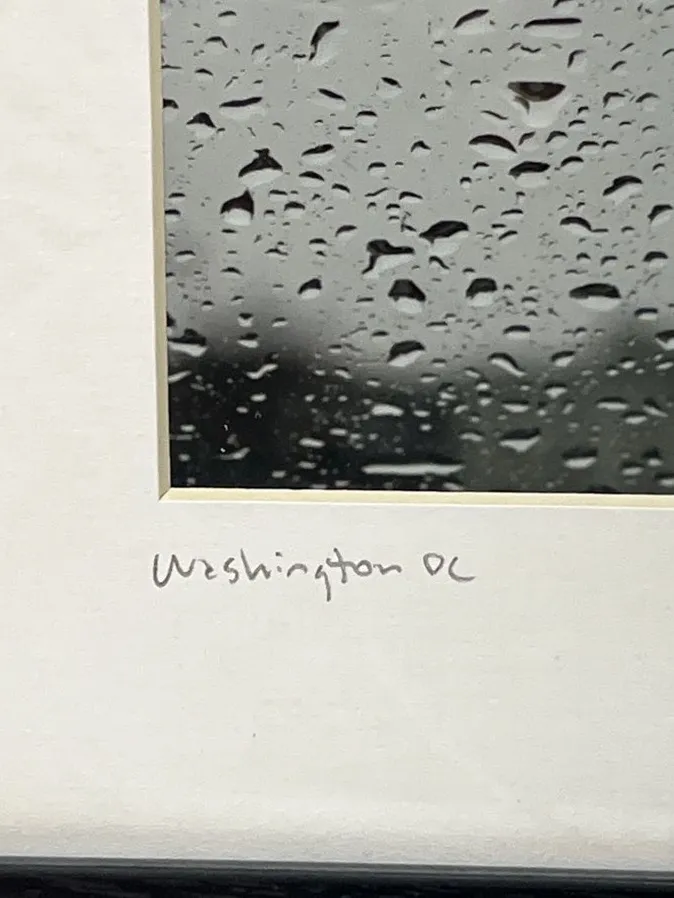 Washington DC